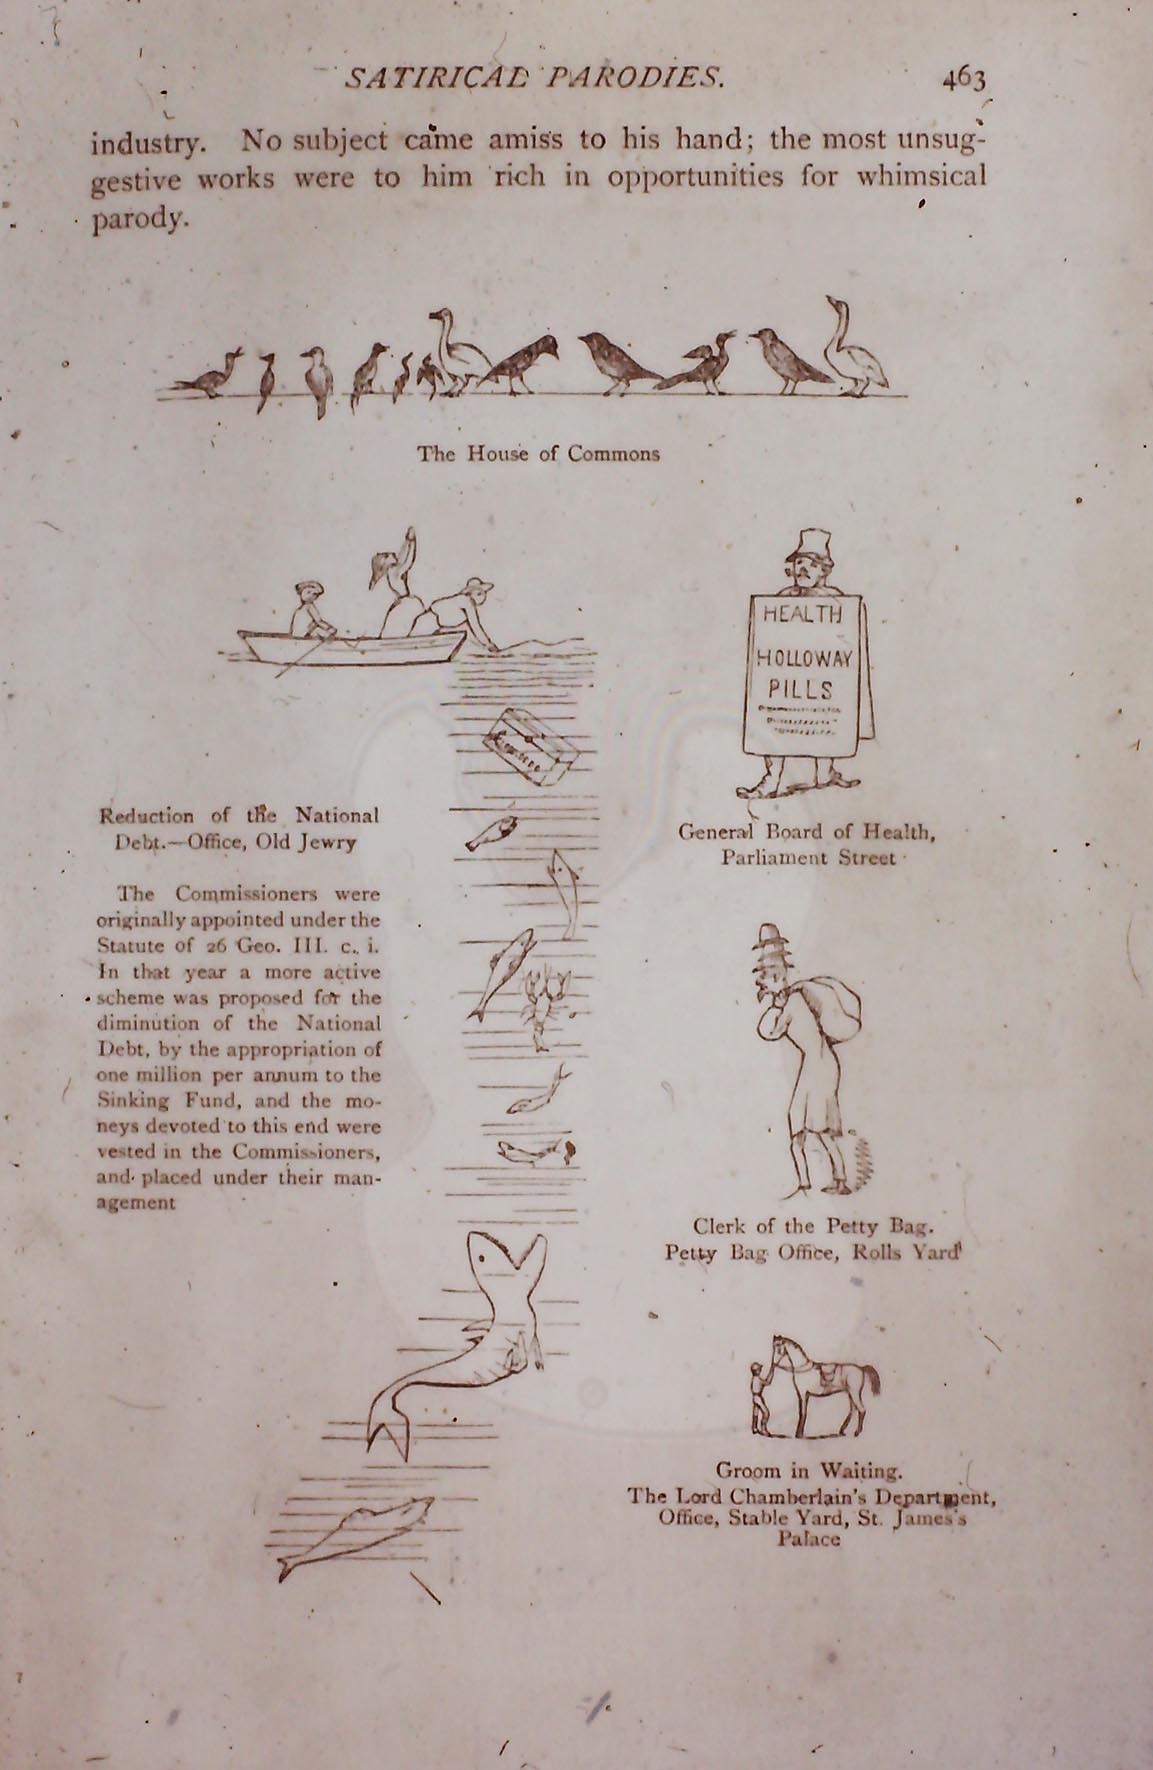 SATIRICAL PARODIES. 463
industry. No subject came amiss to his hand; the most unsug-
gestive works were to him rich in opportunities for whimsical
parody.
The House of Commons
HEALTH
HOLLOWAY
PILLS
Reduction of the National
Debt.—Office, Old Jewry
The Commissioners were
originally appointed under the
Statute of 26 Geo. III. c. i.
In that year a more active
scheme was proposed for the
diminution of the National
Debt, by the appropriation of
one million per annum to the
Sinking Fund, and the mo-
neys devoted to this end were
vested in the Commissioners,
and placed under their man-
agement
General Board of Health,
Parliament Street
Clerk of the Petty Bag.
Petty Bag Office, Rolls Yard
Groom in Waiting.
The Lord Chamberlain's Department,
Office, Stable Yard, St. James's
Palace